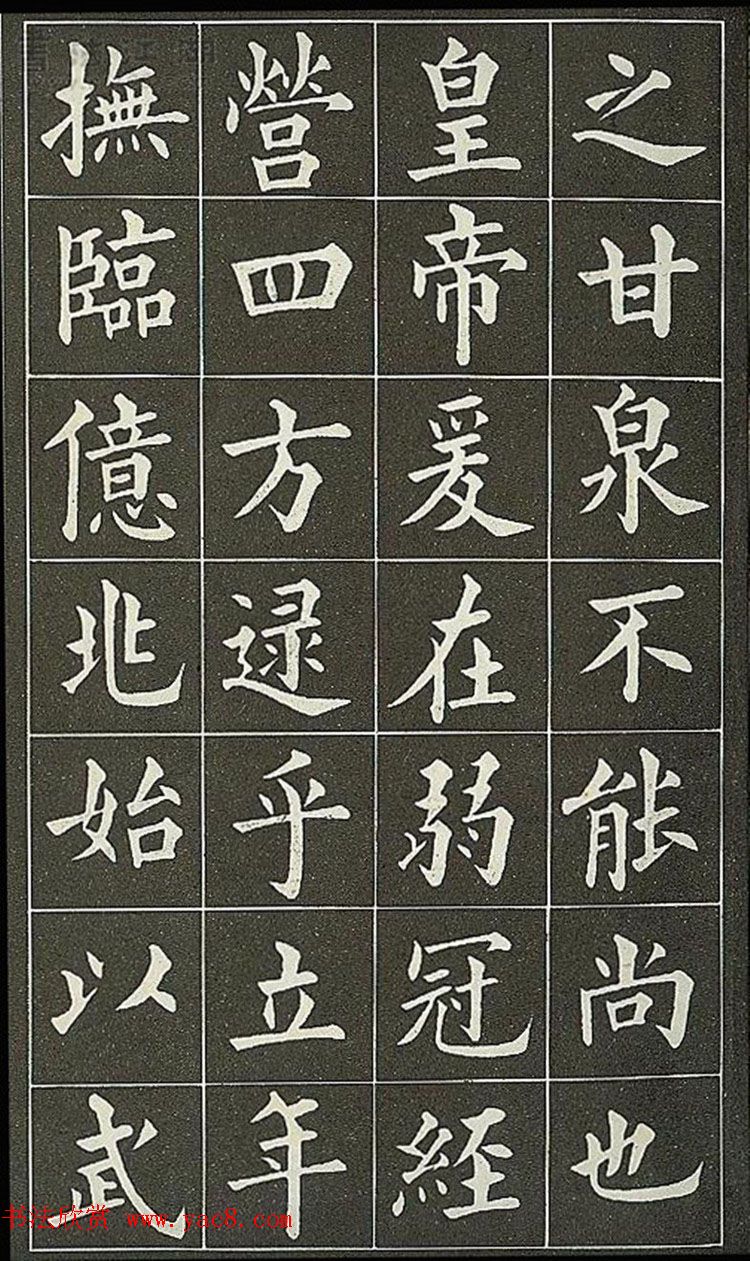 之甘泉不能尚也
皇帝爰在弱冠經
營四方逯乎立年
撫臨億兆始以武
书法欣赏 www.yac8.com